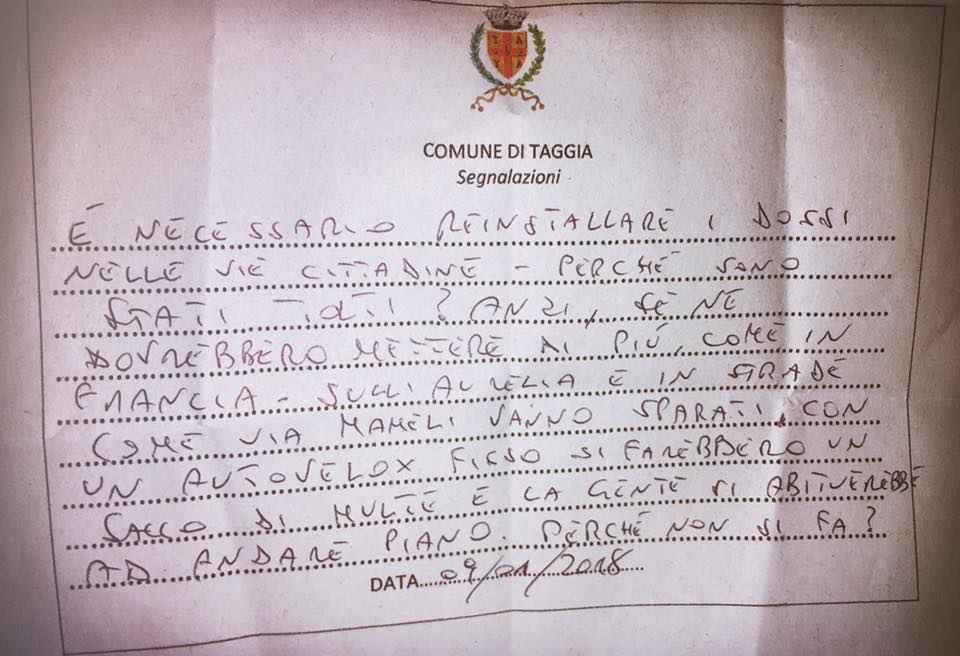 COMUNE DI TAGGIA
Segnalazioni
È NECESSARIO REINSTALLARE I DOSSI
NELLE VIE CITTADINE - PERCHÉ SONO
STATI TOLTI? ANZI, SE NE
DOVREBBERO METTERE DI PIÙ, COME IN
FRANCIA - SULL'AURELIA E IN STRADE
COME VIA MAMELI VANNO SPARATI, CON
UN AUTOVELOX FISSO SI FAREBBERO UN
SACCO DI MULTE E LA GENTE SI ABITUEREBBE
AD ANDARE PIANO. PERCHÉ NON SI FA?
DATA 09/01/2018